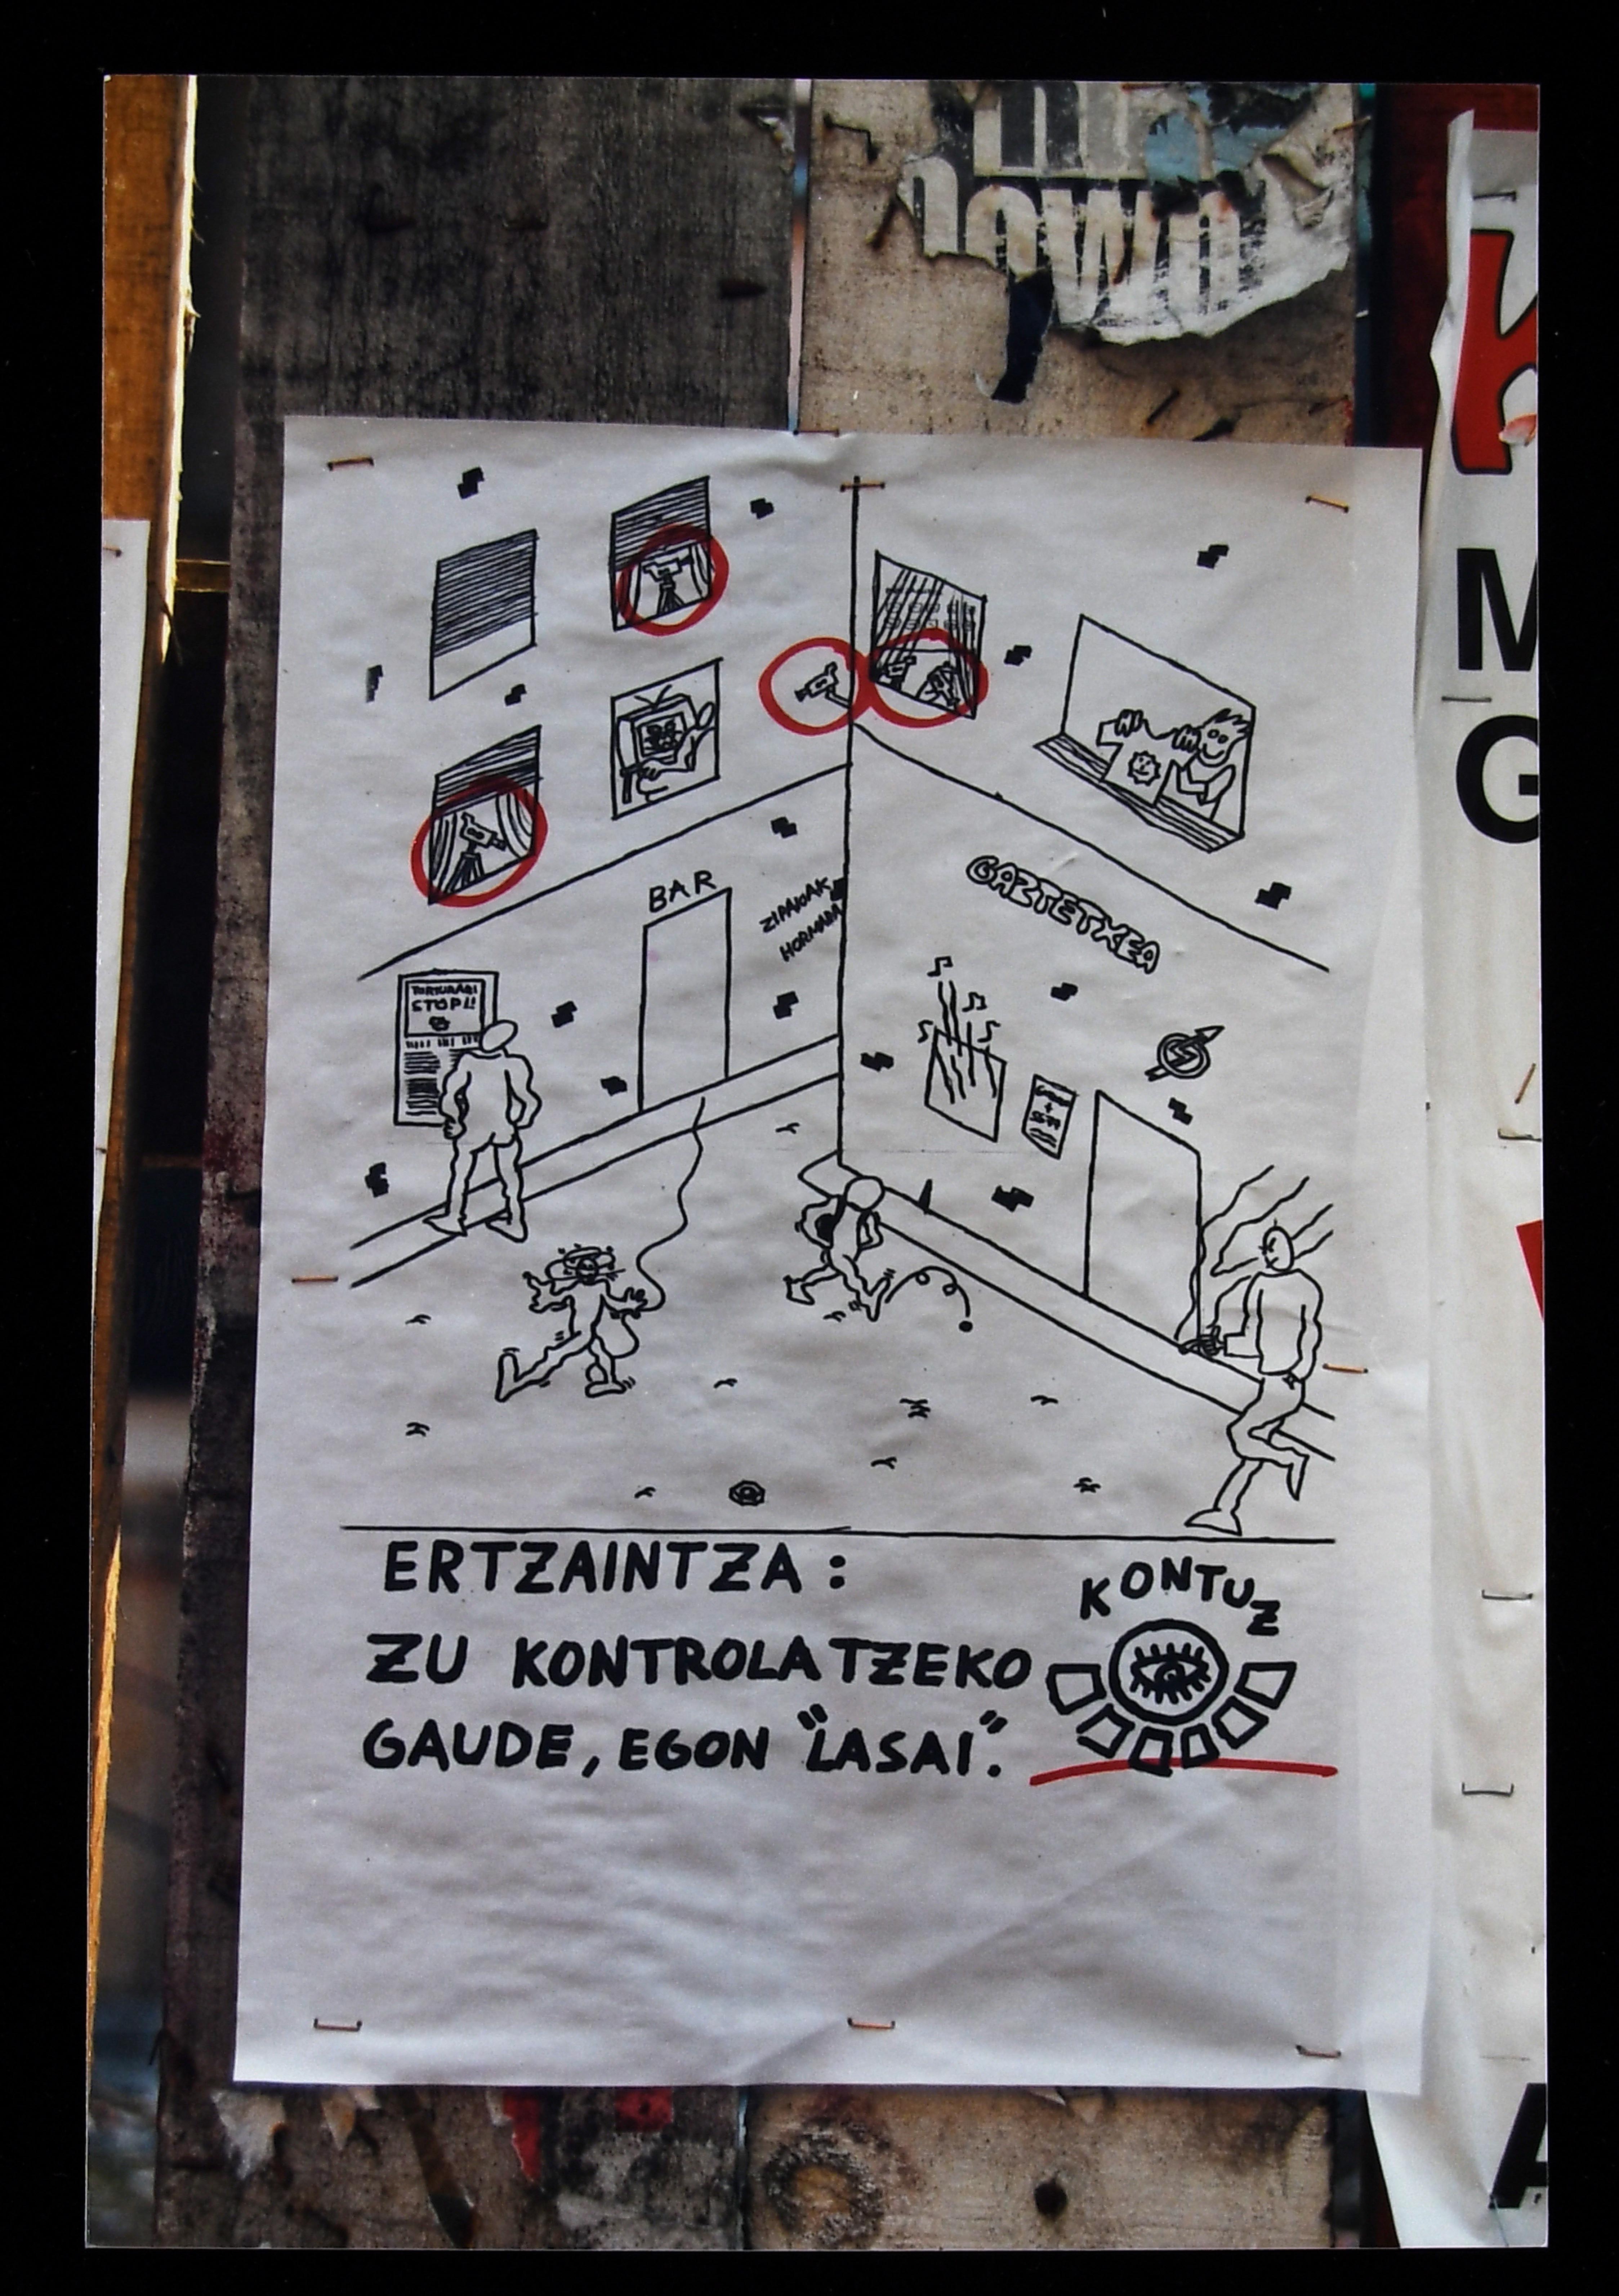 nown
K
M
G
BAR
ZIPAIOAK
HORMARA
GAZTETXEA
TORTURARI
STOP!!
ERTZAINTZA:
ZU KONTROLATZEKO
GAUDE, EGON "LASAI".
KONTUZ
A